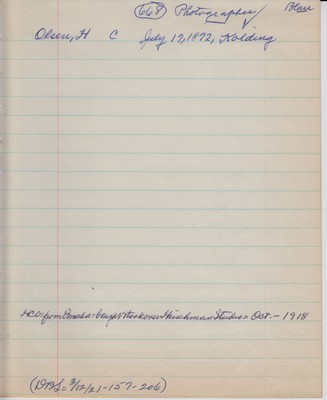 (668) Photographer Blair
Olsen, H C July 17, 1872, Kolding
HCO = from Omaha = bought & took over Hirschman Studio = Oct. - 1918
(DBS = 3/12/21 - 157 - 206)